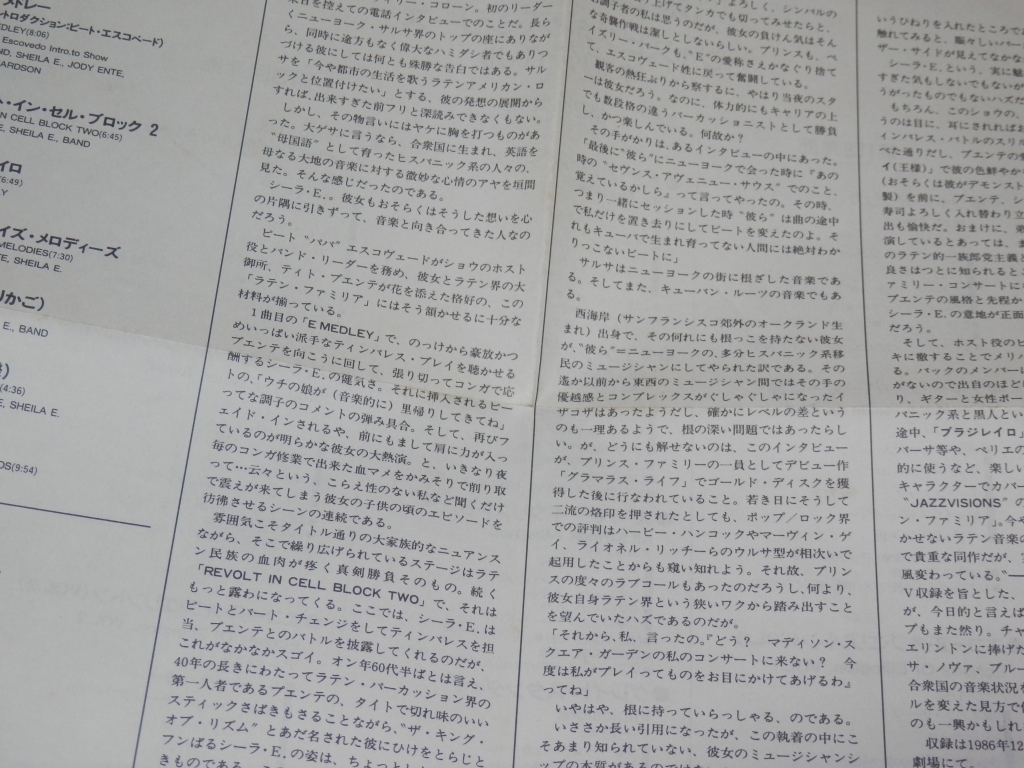 メドレー
(イントロダクション:ピート・エスコベード)
EDLEY(8:06)
Escovedo Intro.to Show
ND, SHEILA E., JODY ENTE,
HARDSON
ト・イン・セル・ブロック 2
IN CELL BLOCK TWO(6:45)
E, SHEILA E., BAND
イロ
(6:49)
EY
イズ・メロディーズ
MELODIES(7:30)
TE, SHEILA E.
りかご)
E., BAND
(4:36)
E, SHEILA E.
OS(9:54)
日を控えての電話インタビューでのことだ。長ら
くニューヨーク・サルサ界のトップの座にありなが
ら、同時に途方もなく偉大なハミダシ者でもありつ
づける彼にしては何とも殊勝な告白ではある。サル
サを“今や都市の生活を歌うラテンアメリカン・ロ
ックと位置付けたい」とする、彼の発想の展開から
すれば、出来すぎた前フリと深読みできなくもない。
しかし、その物言いにはヤケに胸を打つものがあ
った。大ゲサに言うなら、合衆国に生まれ、英語を
“母国語”として育ったヒスパニック系の人々の、
母なる大地の音楽に対する微妙な心情のアヤを垣間
見た。そんな感じだったのである。
シーラ・E.。彼女もおそらくはそうした想いを心
の片隅に引きずって、音楽と向き合ってきた人なの
だろう。
ピート“パパ”エスコヴェードがショウのホスト
役とバンド・リーダーを務め、彼女とラテン界の大
御所、ティト・プエンテが花を添えた格好の、この
「ラテン・ファミリア」にはそう頷かせるに十分な
材料が揃っている。
1曲目の「E MEDLEY」で、のっけから豪放かつ
めいっぱい派手なティンバレス・プレイを聴かせる
プエンテを向こうに回して、張り切ってコンガで応
酬するシーラ・E.の健気さ。それに挿入されるピー
トの、「ウチの娘が（音楽的に）里帰りしてきてね」
ってな調子のコメントの弾み具合。そして、再びフ
ェイド・インされるや、前にもまして肩に力が入っ
ているのが明らかな彼女の大熱演。と、いきなり夜
毎のコンガ修業で出来た血マメをかみそりで削り取
って…云々という、こらえ性のない私など聞くだけ
で震えが来てしまう彼女の子供の頃のエピソードを
彷彿させるシーンの連続である。
雰囲気こそタイトル通りの大家族的なニュアンス
ながら、そこで繰り広げられているステージはラテ
ン民族の血肉が疼く真剣勝負そのもの。続く
「REVOLT IN CELL BLOCK TWO」で、それは
もっと露わになってくる。ここでは、シーラ・E.は
ピートとパート・チェンジをしてティンバレスを担
当、プエンテとのバトルを披露してくれるのだが、
これがなかなかスゴイ。オン年60代半ばとは言え、
40年の長きにわたってラテン・パーカッション界の
第一人者であるプエンテの、タイトで切れ味のいい
スティックさばきもさることながら、“ザ・キング・
オブ・リズム”とあだ名された彼にひけをとらじと
フンばるシーラ・E.の姿は、ちょっとし
な奇襲作戦は潔しとしないらしい。プリンスも、ペ
イズリー・パークも、“E”の愛称さえかなぐり捨て
て、エスコヴェード姓に戻って奮闘している。
観客の熱狂ぶりから察するに、やはり当夜のスタ
ーは彼女だろう。なのに、体力的にもキャリアの上
でも数段格の違うパーカッショニストとして勝負
し、かつ楽しんでいる。何故か？
その手がかりは、あるインタビューの中にあった。
「最後に“彼ら”にニューヨークで会った時に『あの
時の“セヴンス・アヴェニュー・サウス”でのこと、
覚えているかしら』って言ってやったの。その時、
つまり一緒にセッションした時“彼ら”は曲の途中
で私だけを置き去りにしてビートを変えたのよ。そ
れもキューバで生まれ育ってない人間には絶対わか
りっこないビートに」
サルサはニューヨークの街に根ざした音楽であ
る。そしてまた、キューバン・ルーツの音楽でもあ
る。
西海岸（サンフランシスコ郊外のオークランド生
まれ）出身で、その何れにも根っこを持たない彼女
が、“彼ら”＝ニューヨークの、多分ヒスパニック系移
民のミュージシャンにしてやられた訳である。その
遙か以前から東西のミュージシャン間ではその手の
優越感とコンプレックスがぐしゃぐしゃになったイ
ザコザはあったようだし、確かにレベルの差という
のも一理あるようで、根の深い問題ではあったらし
い。が、どうにも解せないのは、このインタビュー
が、プリンス・ファミリーの一員としてデビュー作
「グラマラス・ライフ」でゴールド・ディスクを獲
得した後に行なわれていること。若き日にそうして
二流の烙印を押されたとしても、ポップ／ロック界
での評判はハービー・ハンコックやマーヴィン・ゲ
イ、ライオネル・リッチーらのウルサ型が相次いで
起用したことからも窺い知れよう。それ故、プリン
スの度々のラブコールもあったのだろうし、何より、
彼女自身ラテン界という狭いワクから踏み出すこと
を望んでいたハズであるのだが。
「それから、私、言ったの。『どう？　マディソン・ス
クエア・ガーデンの私のコンサートに来ない？　今
度は私がプレイってものをお目にかけてあげるわ』
ってね」
いやはや、根に持っていらっしゃる、のである。
いささか長い引用になったが、この執着の中にこ
そあまり知られていない、彼女のミュージシャンシ
ップの本質があるのでは
いうひねりを入れたところで
触れてみると、賑々しいパー
ザー・サイドが見えてなかな
シーラ・E.という、実に魅
すぎた気もしないでもないが
うがったものでもないハズだ
もちろん、このショウの、
うのは目に、耳にされればお
ィンバレス・バトルのスリル
べた通りだし、プエンテの愛
イ(王様)」で彼の色鮮やかな
(おそらくは彼がデモンスト
製)を前に、プエンテ、シ
寿司よろしく入れ替わり立
出も愉快だ。おまけに、弟
演しているとあっては、ま
のラテン的一族郎党主義と
良さはつとに知られると
ァミリー・コンサートに
プエンテの風格と先程か
シーラ・E.の意地が正面
だろう。
そして、ホスト役のピ
キに徹することでメリハ
る。バックのメンバーに
がないので出自のほどは
り、ギターと女性ボー
パニック系と黒人とい
途中、「ブラジレイロ」
バーサ等や、ベリエの
的に使うなど、楽しい
キャラクターでカバー
“JAZZVISIONS”の
ン・ファミリア」。今や
かせないラテン音楽の
で貴重な同作だが、
風変わっている。“―
V収録を旨とした、
が、今日的と言えば
プもまた然り。チャ
エリントンに捧げた
サ・ノヴァ、ブルー
合衆国の音楽状況を
ルを変えた見方で
のも一興かもしれ
収録は1986年12
劇場にて。